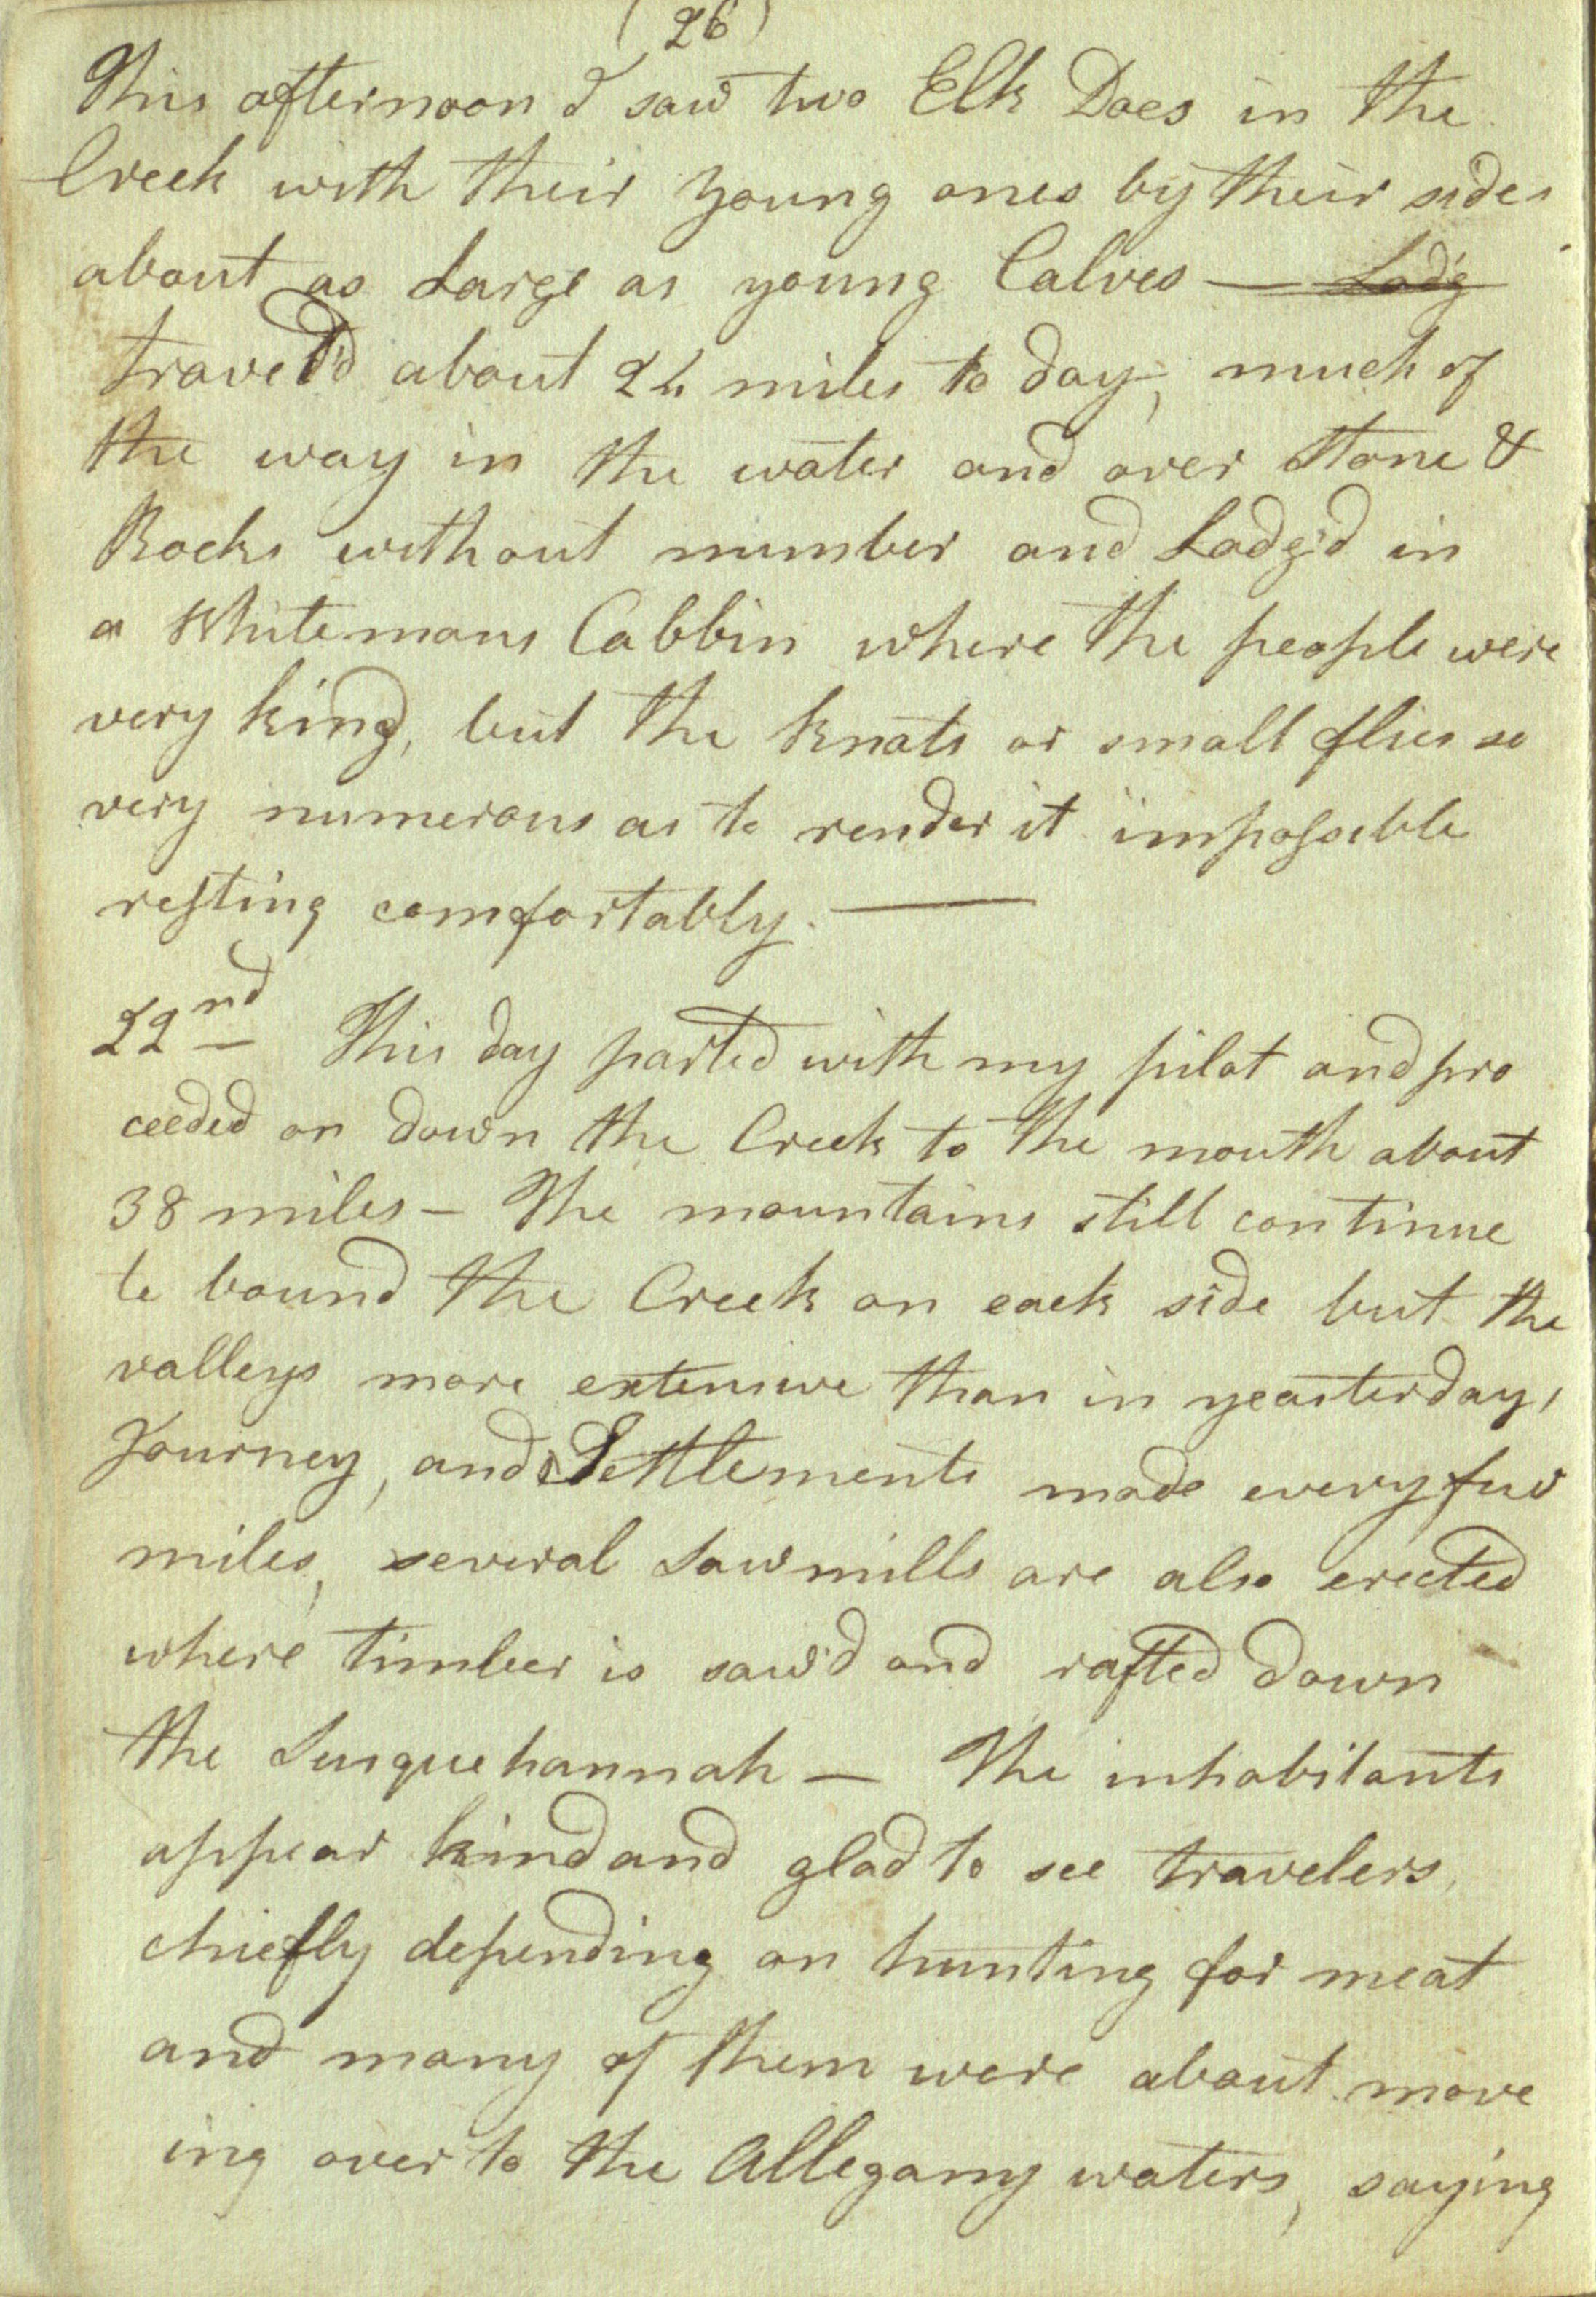 (26)
This afternoon I saw two Elk Does in the
Creek with their young ones by their sides
about as Large as young Calves — Lod'g
travel'd about 24 miles to day, much of
the way in the water and over Stone &
Rocks without number and Lodg'd in
a Whitemans Cabbin where the people were
very kind, but the Knats or small flies so
very numerous as to render it impossible
resting comfortably. —
22nd This day parted with my pilot and pro
ceeded on down the Creek to the mouth about
38 miles — The mountains still continue
to bound the Creek on each side but the
valleys more extensive than in yeasterdays
Journey, and Settlements made every few
miles, several Sawmills are also erected
where timber is saw'd and rafted down
the Susquehannah — The inhabitants
appear kind and glad to see travelers,
chiefly depending on hunting for meat
and many of them were about move
ing over to the Allegany waters, saying